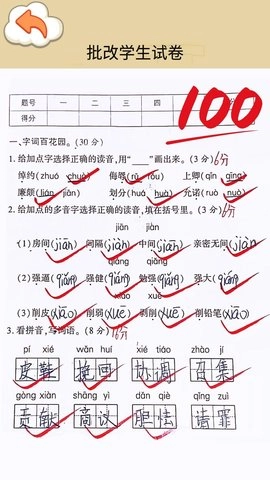 批改学生试卷
题号 一 二 三 四
得分
100
一、字词百花园。(30分)
1. 给加点字选择正确的读音,用“___”画出来。(3分) 6分
绰约(zhuó chuò) 侮辱(rǔ rǒu) 上卿(qīn qīng)
廉颇(lán lián) 划分(huá huà) 允诺(ruò nuò)
2. 给加点的多音字选择正确的读音,填在括号里。(3分)
jiān jiàn
(1)房间(jiān) 间隔(jiàn) 中间(jiān) 亲密无间(jiàn)
qiáng qiǎng
(2)强逼(qiǎng) 强健(qiáng) 勉强(qiǎng) 强大(qiáng)
xiāo xuē
(3)削皮(xiāo) 削弱(xuē) 剥削(xuē) 削铅笔(xiāo)
3. 看拼音,写词语。(8分)
pí xié wǎn huí xié tiáo zhào jí
皮鞋 挽回 协调 召集
gòng xiàn shāng yì dǎn qiè qǐng zuì
贡献 商议 胆怯 请罪